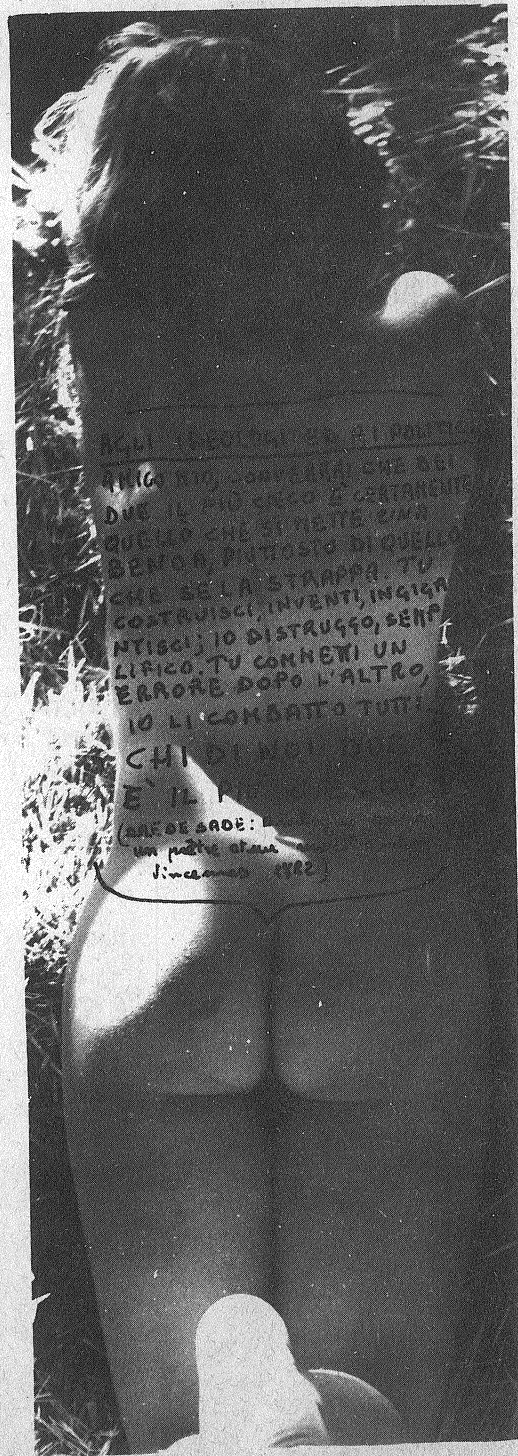 AGLI
AMICO MIO, CHE DEI
DUE IL È CERTAMENTE
QUELLO CHE SI METTE UNA
BENDA, PIUTTOSTO DI QUELLO
CHE SE LA STRAPPA. TU
COSTRUISCI, INVENTI, INGIGA
NTISCI; IO DISTRUGGO, SEMP
LIFICO. TU COMMETTI UN
ERRORE DOPO L'ALTRO,
IO LI COMBATTO TUTTI.
CHI DI NOI DUE
È IL
SADE:
un
Vincennes 1782)